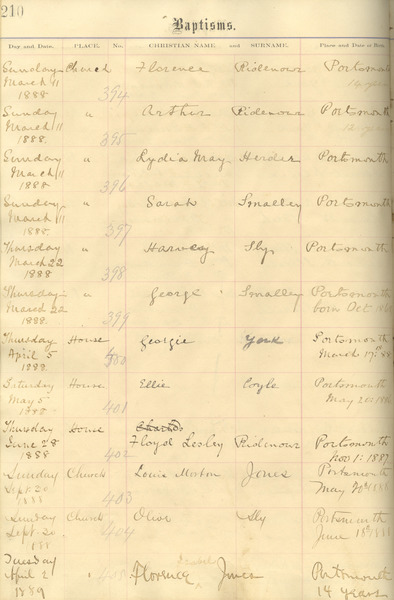 210
Baptisms.
Day and Date. PLACE. No. CHRISTIAN NAME and SURNAME. Place and Date of Birth.
Sunday Church Florence Ridenour Portsmouth
March 11
1888 394
Sunday " Arthur Ridenour Portsmouth
March 11
1888. 395
Sunday " Lydia May Herder Portsmouth
March 11
1888 396
Sunday " Sarah Smalley Portsmouth
March 11
1888. 397
Thursday " Harvey Sly Portsmouth
March 22
1888 398
Thursday " George Smalley Portsmouth
March 22 born Oct
1888. 399
Thursday House Georgie York Portsmouth
April 5 March 17th
1888
Saturday House Ellie Coyle Portsmouth
May 5 May
1888 401
Thursday House
June 28 Floyd Lesley Ridenour Portsmouth
1888 402 Nov 1: 1887
Sunday Church Louis Morton Jones Portsmouth
Sept. 30 May
1888 403
Sunday Church Olive Sly Portsmouth
Sept. 30 June 18th
188 404
Tuesday
April 2 " 405 Florence Jones Portsmouth
1889 14 years